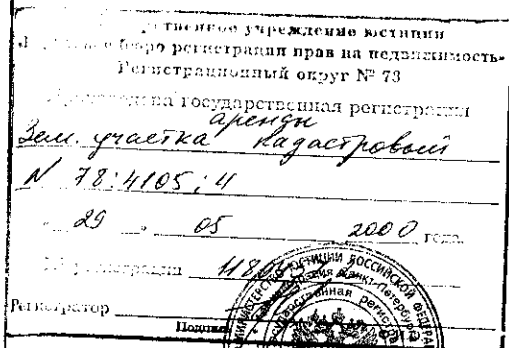 учреждение юстиции
бюро регистрации прав на недвижимость»
Регистрационный округ № 78
Произведена государственная регистрация
аренды
Зем. участка кадастровый
N 78:4105:4
29 05 2000 года.
№ регистрации 118
Регистратор
МИНИСТЕРСТВО ЮСТИЦИИ РОССИЙСКОЙ ФЕДЕРА
Санкт-Петербурга
Государственная регистра